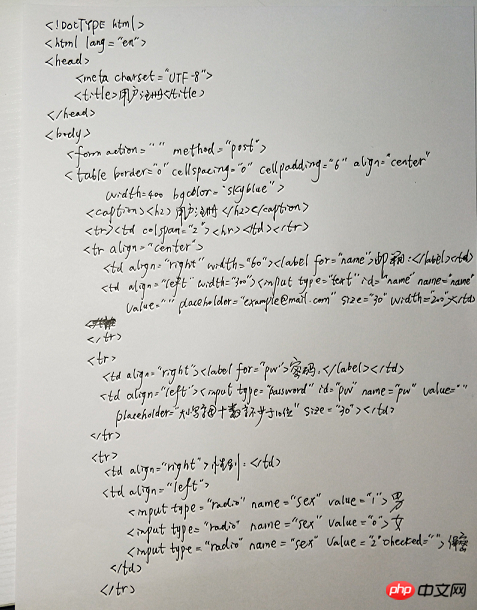 <!DOCTYPE html>
<html lang="en">
<head>
<meta charset="UTF-8">
<title>用户注册</title>
</head>
<body>
<form action="" method="post">
<table border="0" cellspacing="0" cellpadding="6" align="center"
width=400 bgcolor="skyblue">
<caption><h2>用户注册</h2></caption>
<tr><td colspan="2"><hr></td></tr>
<tr align="center">
<td align="right" width="60"><label for="name">邮箱:</label></td>
<td align="left" width="300"><input type="text" id="name" name="name"
value="" placeholder="example@mail.com" size="30" width="200"></td>
</tr>
<tr>
<td align="right"><label for="pw">密码:</label></td>
<td align="left"><input type="password" id="pw" name="pw" value=""
placeholder="大小写字母+数字不少于10位" size="30"></td>
</tr>
<tr>
<td align="right">性别:</td>
<td align="left">
<input type="radio" name="sex" value="1">男
<input type="radio" name="sex" value="0">女
<input type="radio" name="sex" value="2" checked="">保密
</td>
</tr>
php中文网